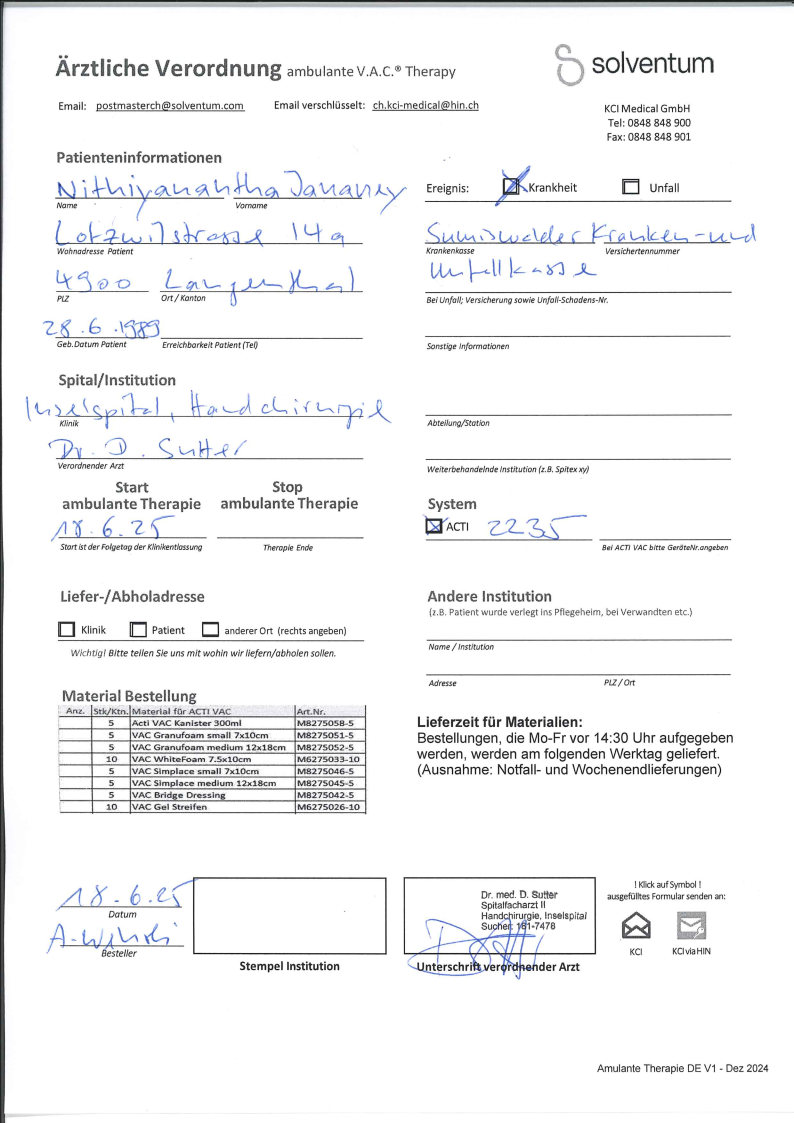 Ärztliche Verordnung ambulante V.A.C.® Therapy
solventum
Email: postmasterch@solventum.com Email verschlüsselt: ch.kci-medical@hin.ch
KCI Medical GmbH
Tel: 0848 848 900
Fax: 0848 848 901
Patienteninformationen
Nithiyanantha Jananey
Name Vorname
Ereignis: Krankheit Unfall
Lotzwilstrasse 14a
Wohnadresse Patient
Sumiswalder Kranken- und
Krankenkasse Versichertennummer
Unfallkasse
4900 Langenthal
PLZ Ort / Kanton
Bei Unfall; Versicherung sowie Unfall-Schadens-Nr.
28.6.1989
Geb.Datum Patient Erreichbarkeit Patient (Tel)
Sonstige Informationen
Spital/Institution
Inselspital, Handchirurgie
Klinik
Abteilung/Station
Dr. D. Sutter
Verordnender Arzt
Weiterbehandelnde Institution (z.B. Spitex xy)
Start ambulante Therapie
Stop ambulante Therapie
System
18.6.25
ACTI 2235
Start ist der Folgetag der Klinikentlassung Therapie Ende
Bei ACTI VAC bitte GeräteNr.angeben
Liefer-/Abholadresse
Klinik Patient anderer Ort (rechts angeben)
Wichtig! Bitte teilen Sie uns mit wohin wir liefern/abholen sollen.
Andere Institution
(z.B. Patient wurde verlegt ins Pflegeheim, bei Verwandten etc.)
Name / Institution
Adresse PLZ / Ort
Material Bestellung
Anz. Stk/Ktn. Material für ACTI VAC Art.Nr.
5 Acti VAC Kanister 300ml M8275058-5
5 VAC Granufoam small 7x10cm M8275051-5
5 VAC Granufoam medium 12x18cm M8275052-5
10 VAC WhiteFoam 7.5x10cm M6275033-10
5 VAC Simplace small 7x10cm M8275046-5
5 VAC Simplace medium 12x18cm M8275045-5
5 VAC Bridge Dressing M8275042-5
10 VAC Gel Streifen M6275026-10
Lieferzeit für Materialien:
Bestellungen, die Mo-Fr vor 14:30 Uhr aufgegeben
werden, werden am folgenden Werktag geliefert.
(Ausnahme: Notfall- und Wochenendlieferungen)
18.6.25
Datum
Besteller
Stempel Institution
Dr. med. D. Sutter
Spitalfacharzt II
Handchirurgie, Inselspital
Sucher: 161-7478
Unterschrift verordnender Arzt
! Klick auf Symbol !
ausgefülltes Formular senden an:
KCI KCI via HIN
Amulante Therapie DE V1 - Dez 2024